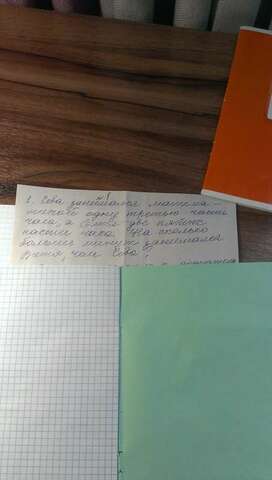 1. Сева занимался матема-
тикой одну третью часть
часа, а Витя две пятых
части часа. На сколько
больше минут занимался
Витя, чем Сева?